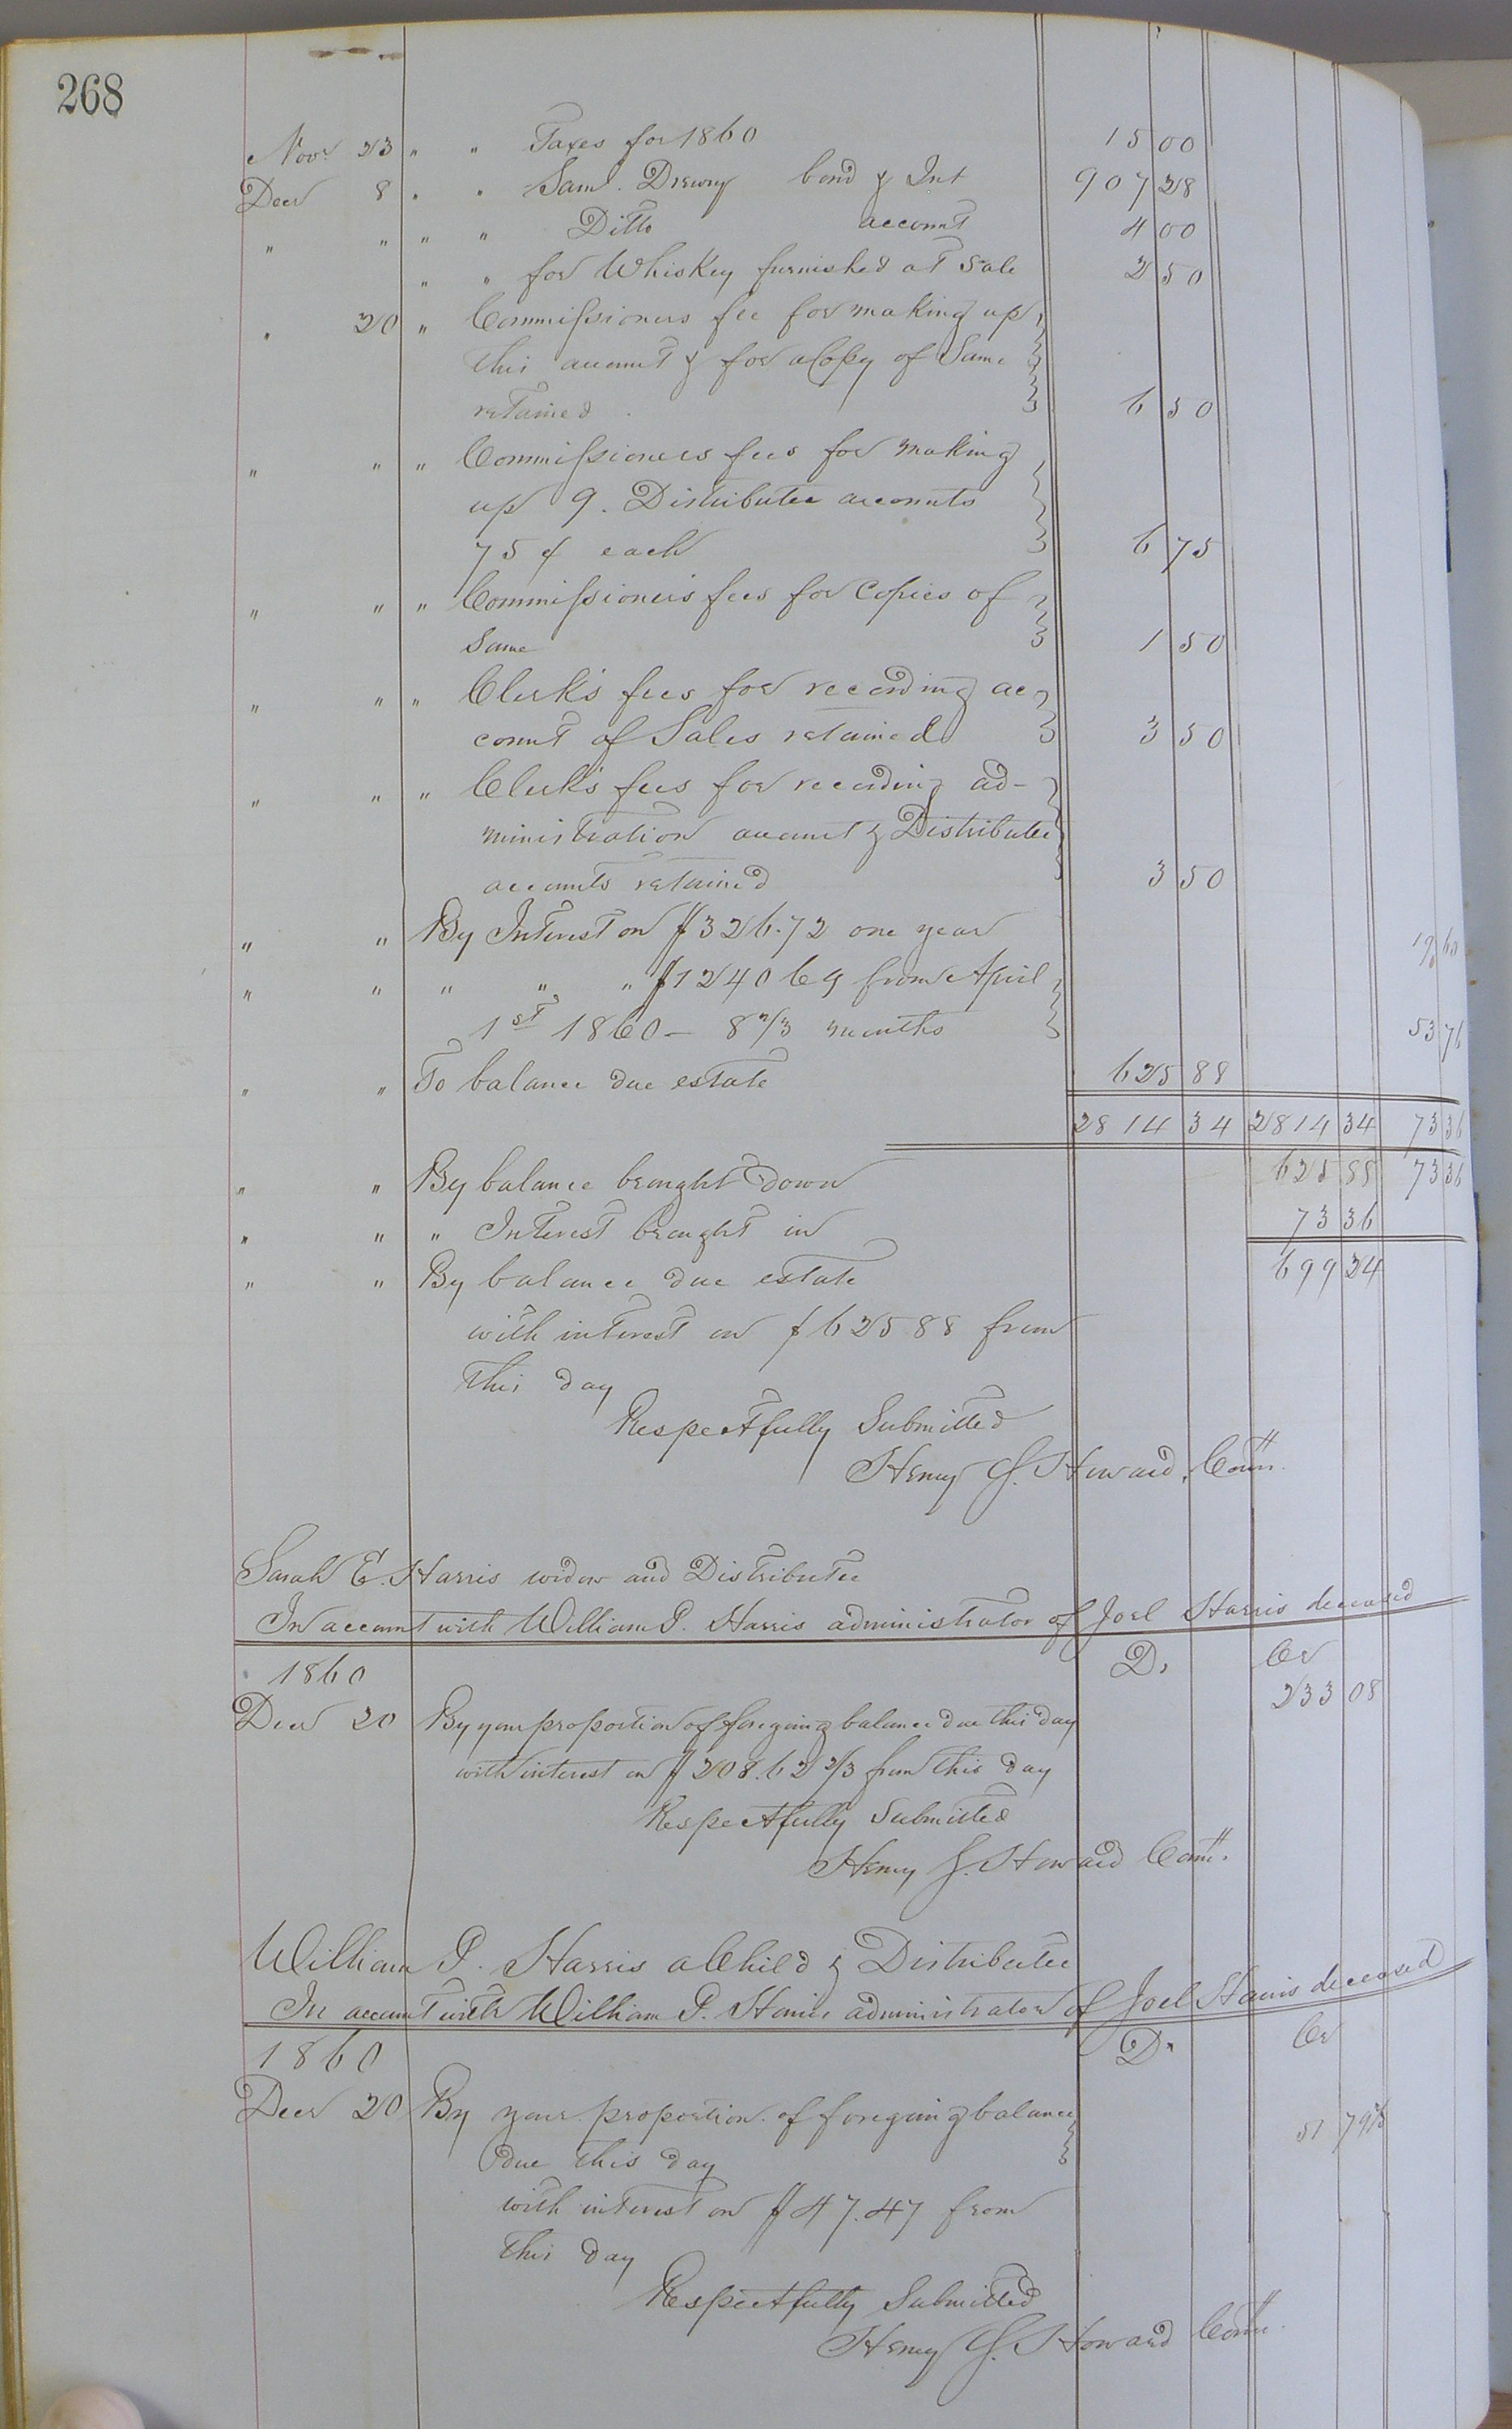 268
Novr 23 " " Taxes for 1860 15 00
Decr 8 " " Saml. Drewry bond & Int 907 28
" " " " Ditto account 4 00
" " for Whiskey furnished at Sale 2 50
" 20 " Commissioners fee for making up
this account & for a Copy of Same
retained . 6 50
" " " Commissioners fees for making
up 9. Distributee accounts
75 ¢ each 6 75
" " " Commissioner's fees for Copies of
Same 1 50
" " " Clerk's fees for recording ac
count of Sales retained 3 50
" " " Clerk's fees for recording ad-
ministration account & Distributee
accounts retained 3 50
" " By Interest on $326.72 one year 19 60
" " " " " $1240 69 from April
1st 1860 – 8 2/3 months 53 76
" " To balance due estate 625 88
2814 34 2814 34 73 36
" " By balance brought down 625 88 73 36
" " " Interest brought in 73 36
" " By balance due estate 699 24
with interest on $625 88 from
this day
Respectfully Submitted
Henry J. Howard, Comr.
Sarah E. Harris widow and Distributee
In account with William P. Harris administrator of Joel Harris deceased
1860 Dr Cr
Decr 20 By your proportion of foregoing balance due this day 233 08
with interest on $208.62 2/3 from this day
Respectfully Submitted
Henry J. Howard Comr.
William P. Harris a Child & Distributee
In account with William P. Harris administrator of Joel Harris deceased
1860 Dr Cr
Decr 20 By your proportion of foregoing balance
due this day 51 79
with interest on $47.47 from
this day
Respectfully Submitted
Henry J. Howard Comr.